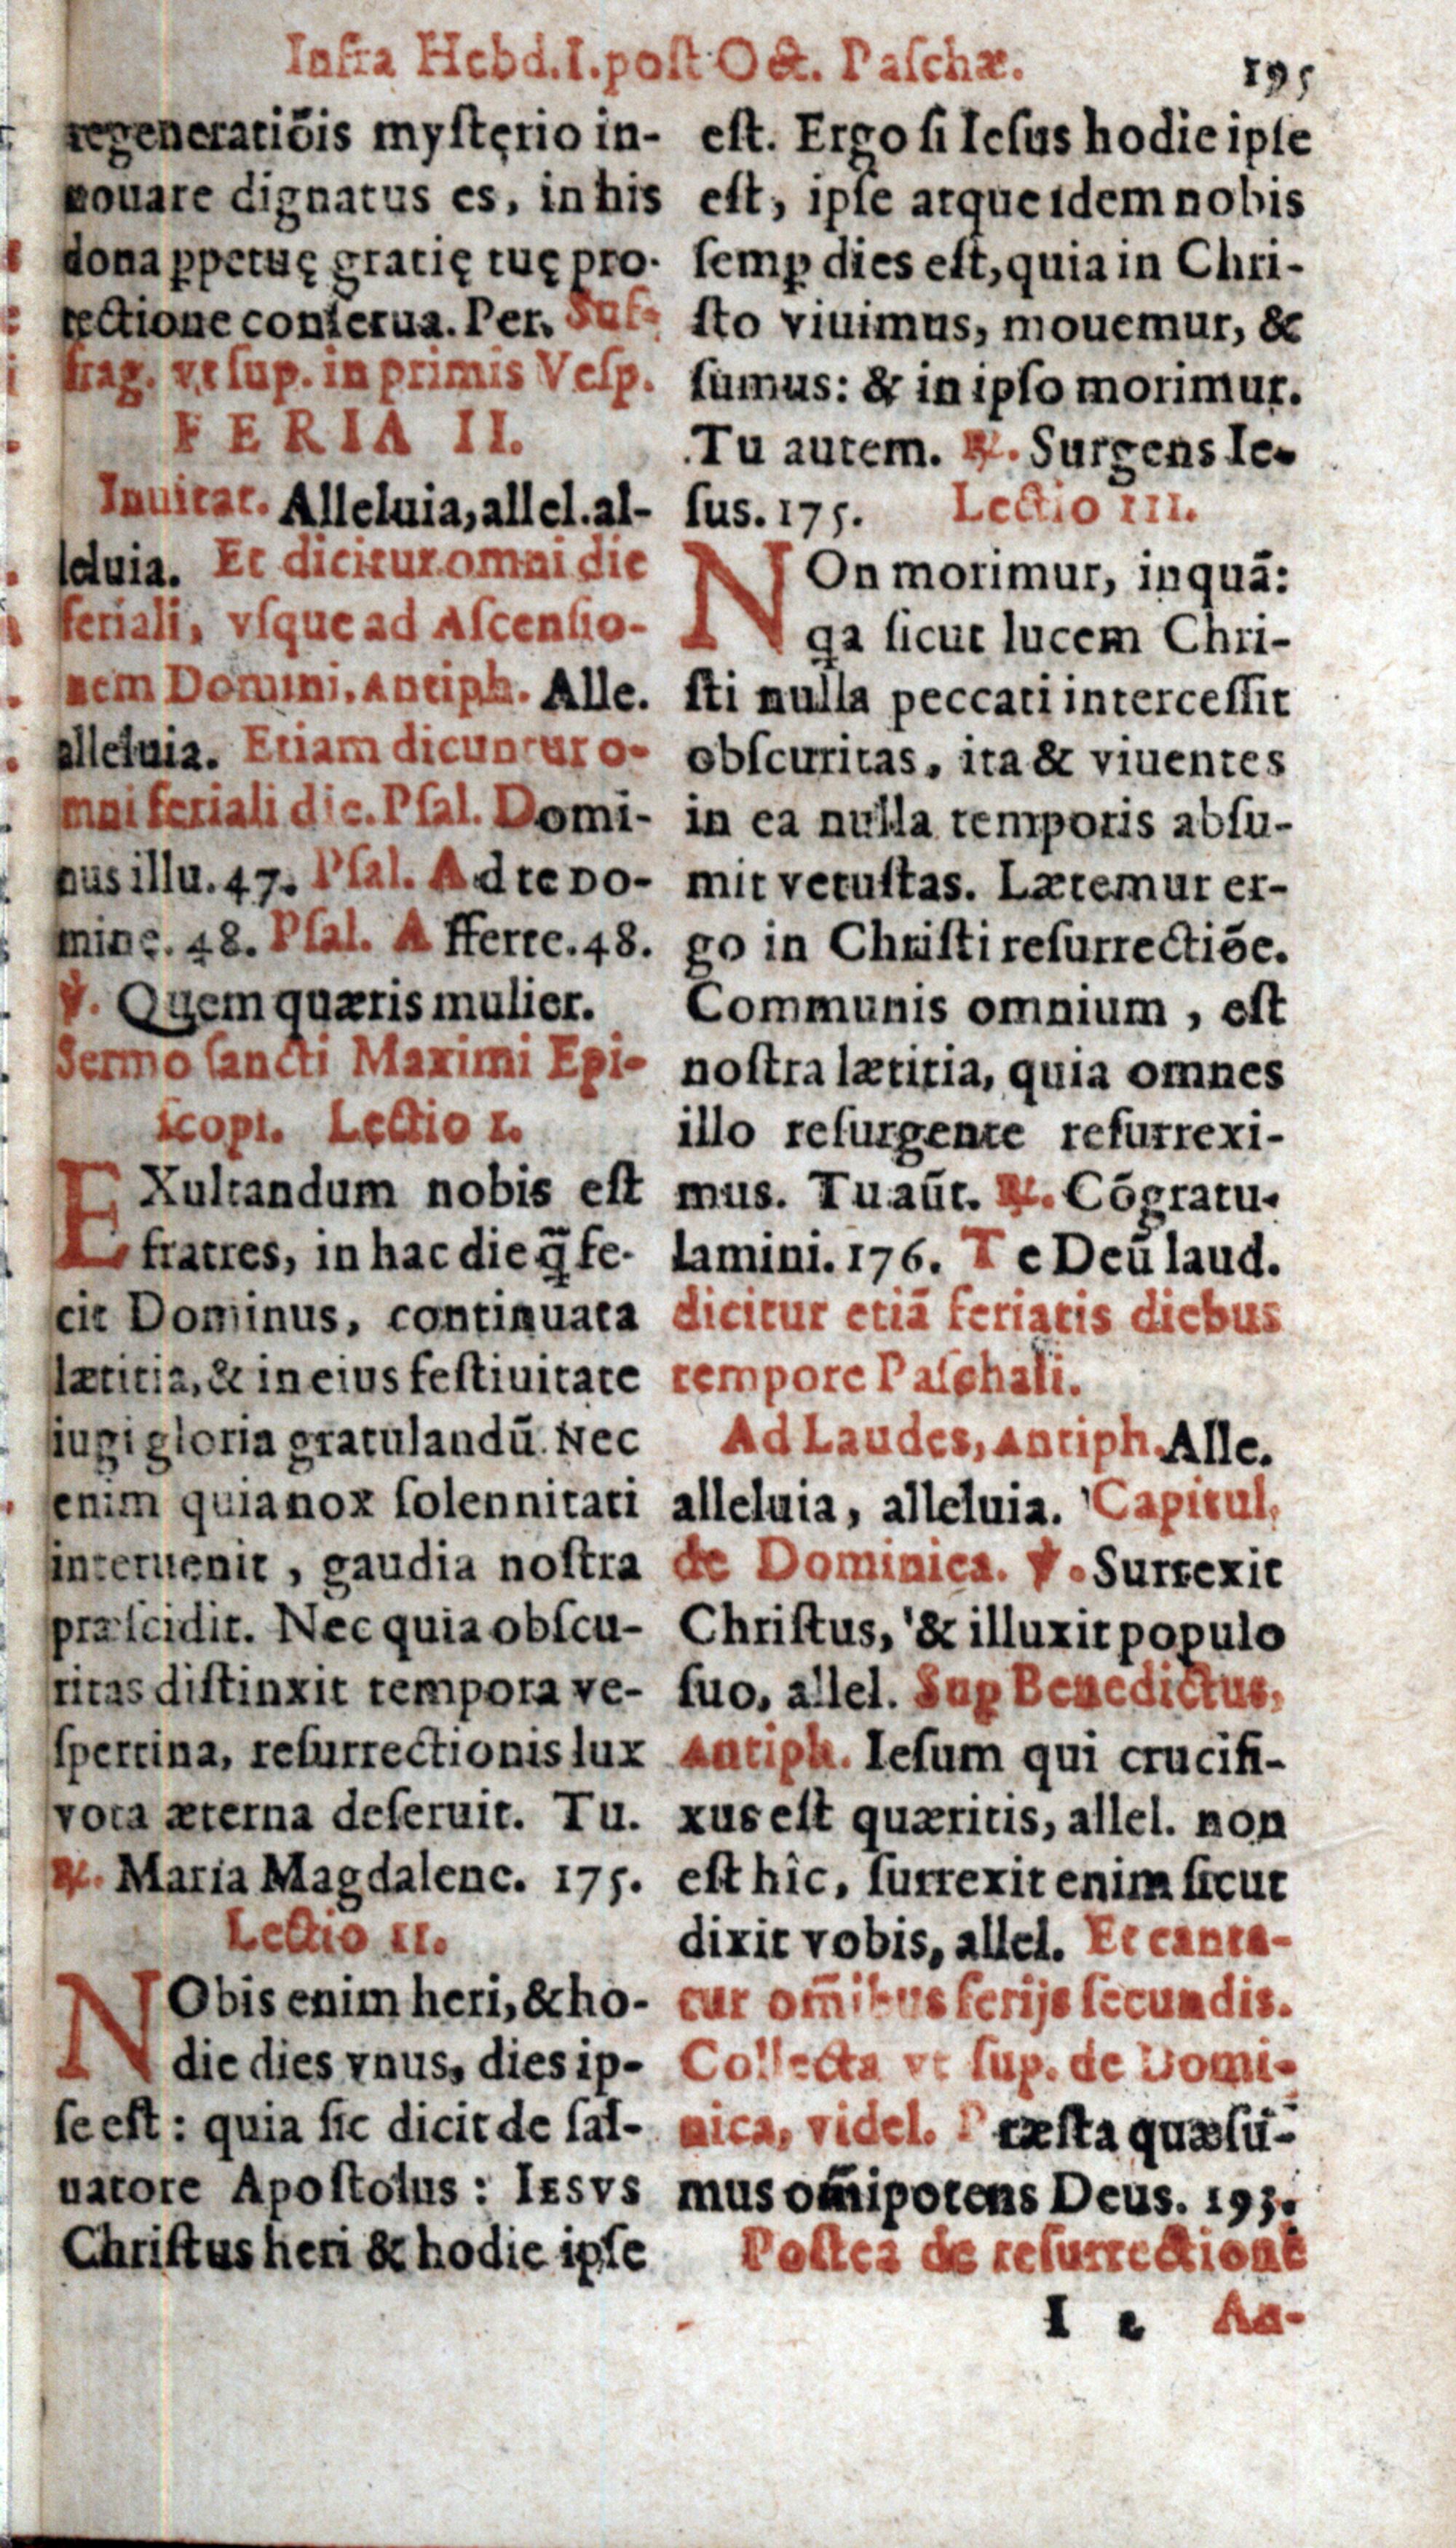 Infra Hebd. I. poſt Oct. Paſchæ.
195
regeneratiõis myſtęrio in-
nouare dignatus es, in his
dona ꝑpetuę gratię tuę pro-
tectione conſerua. Per. Suf-
frag. vt ſup. in primis Veſp.
FERIA II.
Inuitat. Alleluia, allel. al-
leluia. Et dicitur omni die
feriali, vſque ad Aſcenſio-
nem Domini. Antiph. Alle.
alleluia. Etiam dicuntur o-
mni feriali die. Pſal. Domi-
nus illu. 47. Pſal. Ad te Do-
minę. 48. Pſal. Afferte. 48.
℣. Quem quæris mulier.
Sermo ſancti Maximi Epi-
ſcopi. Lectio I.
EXultandum nobis eſt
fratres, in hac die q̃ fe-
cit Dominus, continuata
lætitia, & in eius feſtiuitate
iugi gloria gratulandũ. Nec
enim quia nox ſolennitati
interuenit, gaudia noſtra
præſcidit. Nec quia obſcu-
ritas diſtinxit tempora ve-
ſpertina, reſurrectionis lux
vota æterna deſeruit. Tu.
℟. Maria Magdalene. 175.
Lectio II.
NObis enim heri, & ho-
die dies vnus, dies ip-
ſe eſt: quia ſic dicit de ſal-
uatore Apoſtolus: IESVS
Chriſtus heri & hodie ipſe
eſt. Ergo ſi Ieſus hodie ipſe
eſt, ipſe atque idem nobis
ſemꝑ dies eſt, quia in Chri-
ſto viuimus, mouemur, &
ſumus: & in ipſo morimur.
Tu autem. ℟. Surgens Ie-
ſus. 175. Lectio III.
NOn morimur, inquã:
qa ſicut lucem Chri-
ſti nulla peccati interceſſit
obſcuritas, ita & viuentes
in ea nulla temporis abſu-
mit vetuſtas. Lætemur er-
go in Chriſti reſurrectiõe.
Communis omnium, eſt
noſtra lætitia, quia omnes
illo reſurgente reſurrexi-
mus. Tu aũt. ℟. Cõgratu-
lamini. 176. Te Deũ laud.
dicitur etiã feriatis diebus
tempore Paſchali.
Ad Laudes, Antiph. Alle.
alleluia, alleluia. Capitul.
de Dominica. ℣. Surrexit
Chriſtus, & illuxit populo
ſuo, allel. Suꝑ Benedictus,
Antiph. Ieſum qui crucifi-
xus eſt quæritis, allel. non
eſt hîc, ſurrexit enim ſicut
dixit vobis, allel. Et canta-
tur om̃ibus ferijs ſecundis.
Collecta vt ſup. de Domi-
nica, videl. Præſta quæſu-
mus om̃ipotens Deus. 193.
Poſtea de reſurrectione
I 2 An-